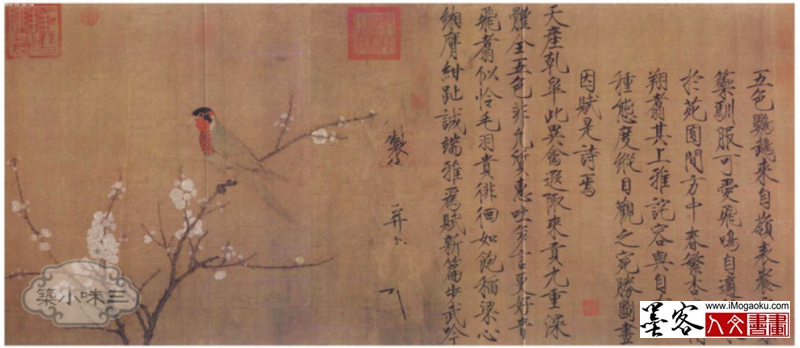 五色鸚鵡來自嶺表養
籞馴服可愛飛鳴自適
於苑囿間方中春繁杏
翔翥其上雅詫容與自
種態度縱目觀之宛勝圖畫
因賦是詩焉
天產乾皋此異禽遐陬來貢九重深
體全五色非凡質惠吐多言更好音
飛翥似憐毛羽貴徘徊如飽稻粱心
緗膺紺趾誠端雅為賦新篇步武吟
三味小築
www.iMogaoku.com
墨客
人文書畫